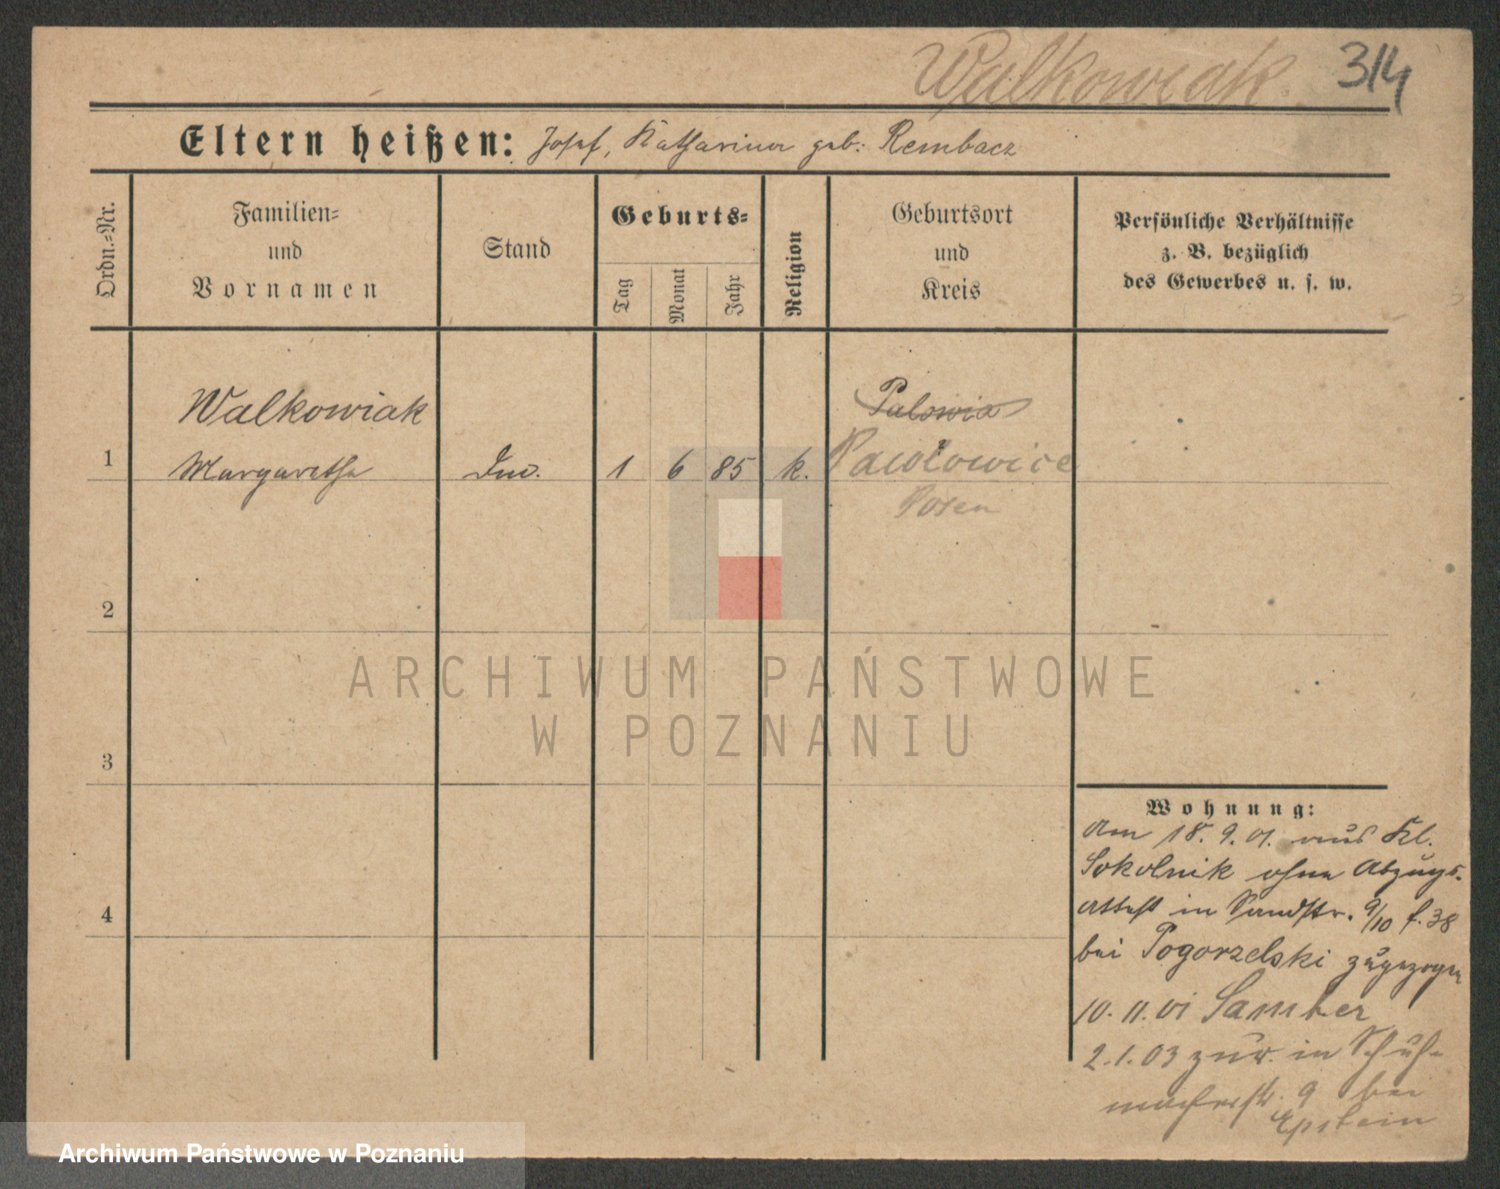 Walkowiak. 314
Eltern heißen: Josef, Katharina geb: Rembacz
Ordn.-Nr.
Familien-
und
Vornamen
Stand
Geburts-
Tag
Monat
Jahr
Religion
Geburtsort
und
Kreis
Persönliche Verhältnisse
z. B. bezüglich
des Gewerbes u. s. w.
Walkowiak
1 Margaretha 1 6 85 k.
Palowia
Pawłowice
Posen
2
3
4
Wohnung:
Am 18. 9. 01. aus Kl.
Sokolnik ohne Abzugs-
attest in Sandstr. 9/10 f. 38
bei Pogorzelski zugezogen
10. 11. 01 Samter
2. 1. 03 zur. in Schuh-
macherstr. 9 bei
Epstein
ARCHIWUM PAŃSTWOWE
W POZNANIU
Archiwum Państwowe w Poznaniu